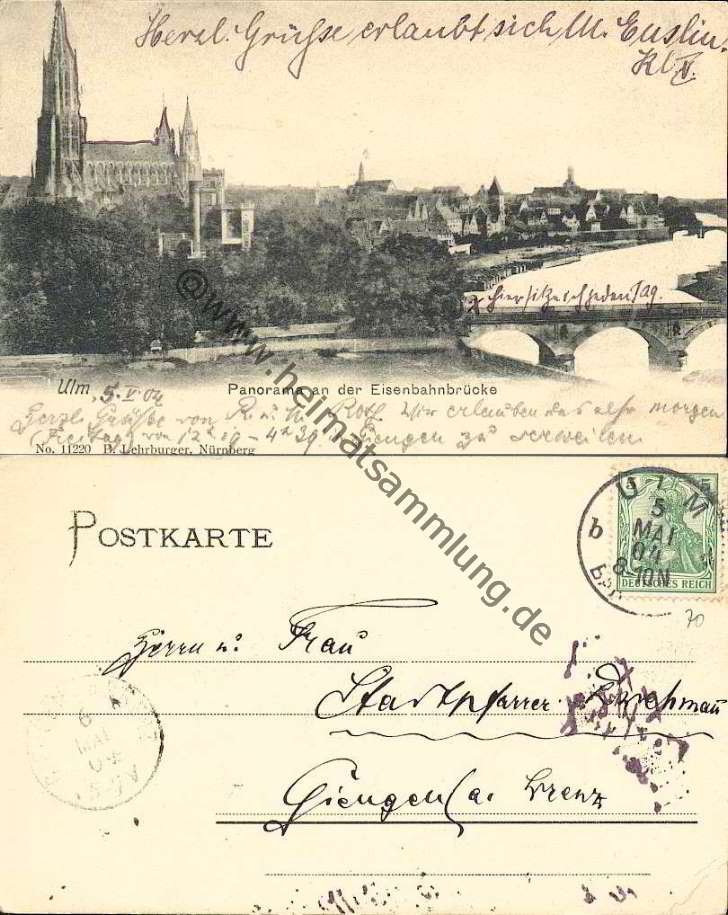 Herzl. Grüße erlaubt sich M. Enslin.
Kl. V.
x hier sitze ich jeden Tag.
Ulm, 5. V. 04
Panorama an der Eisenbahnbrücke
Herzl. Grüße von R. u. H. Wir erlauben das morgen
(Freitag) von 12 - 4 39. Giengen zu verweilen
No. 11220 B. Lehrburger, Nürnberg
©www.heimatsammlung.de
POSTKARTE
ULM
5
MAI
04
8-10N
b
5
DEUTSCHES REICH
70
Herrn u. Frau
Stadtpfarrer
Giengen a. Brenz
6
MAI
04